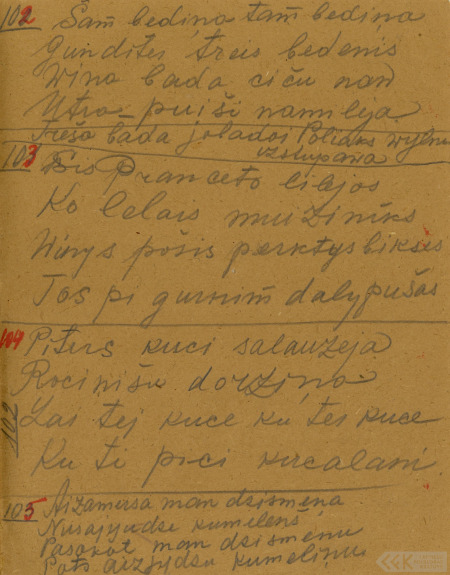 102 Šam̄ bedina tam̄ bedina
Gundites treis bedenis
Wina bada ciču nan
Utra - puiši namileja
Treša bada joladoi Poliaks wylnu
izslupawa
103 Es Pranceto lilejos
Ko lelais muižiniks
Winys pošis perktys bikses
Tos pi gurnim̄ dalypušas
104 Piters kuci salauzeja
Rocinišu dorzina
102 Lai tej kuce ku tei kuce
Ku ti pici kucalani
105 Aizamersa man dzismena
Nusajyudze kumelenš
Pasokot man dzismenu
Pats aizjydzu kumelinu